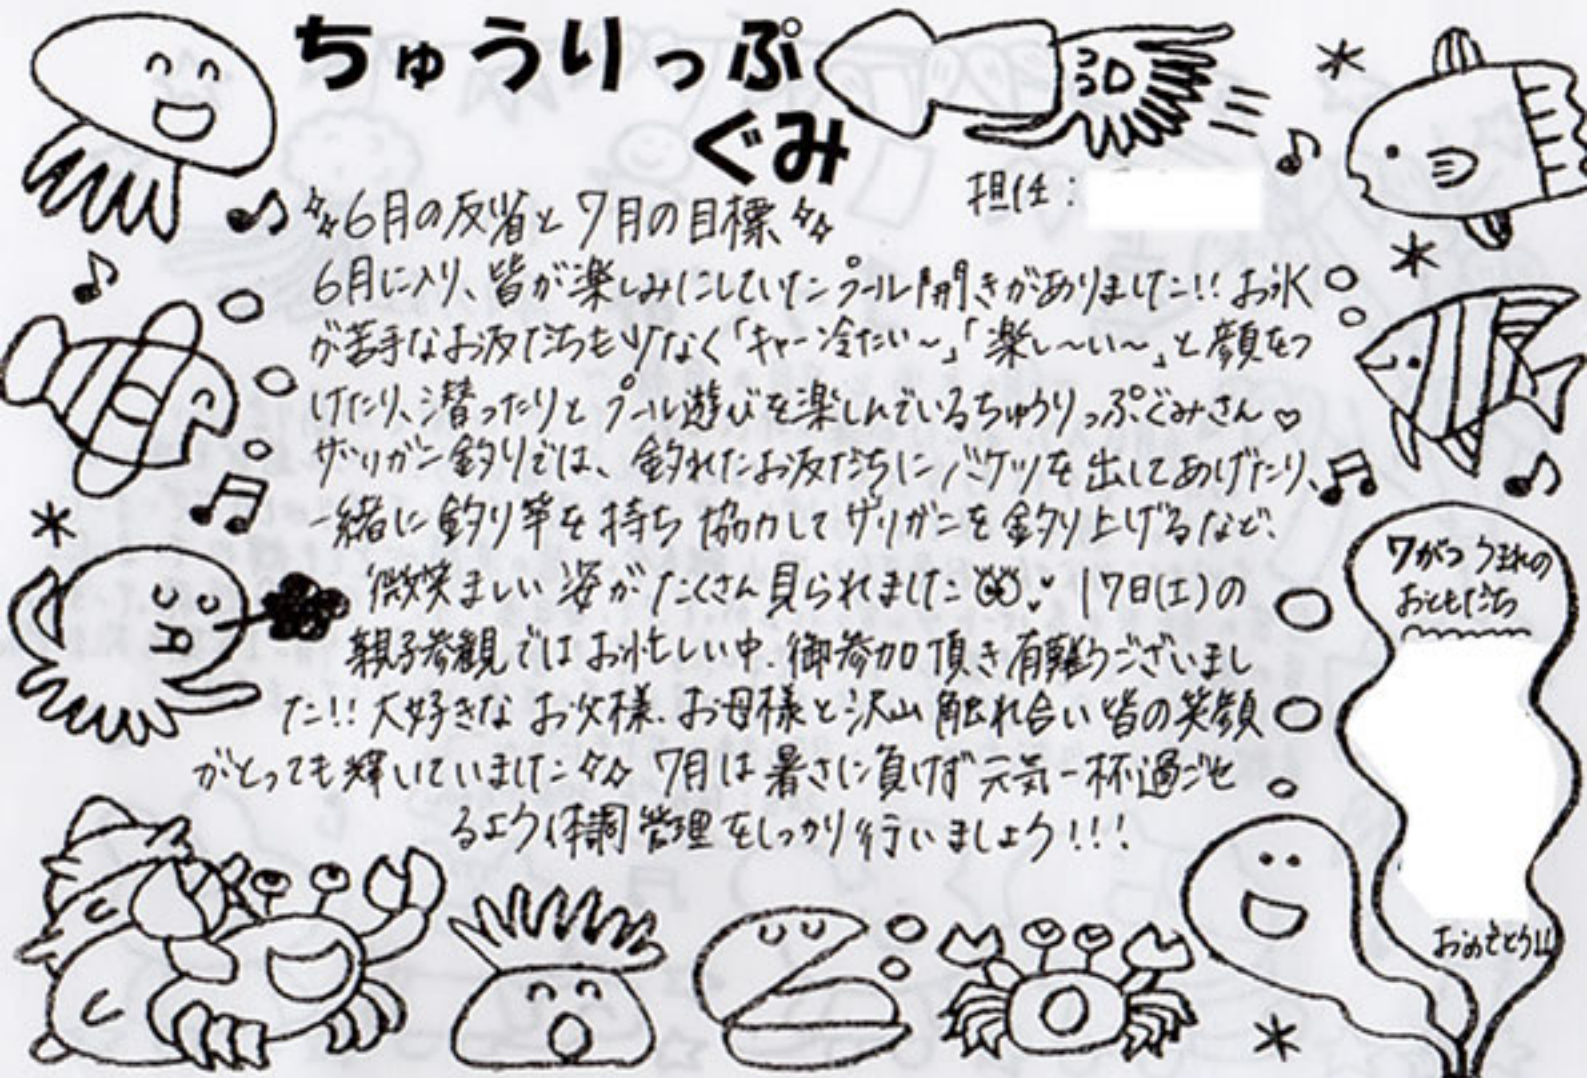 ちゅうりっぷ
ぐみ
担任:
6月の反省と7月の目標
6月に入り、皆が楽しみにしていたプール開きがありました!!お水
が苦手なお友だちも少なく「キャー冷たい~」「楽し~い~」と顔をつ
けたり、潜ったりとプール遊びを楽しんでいるちゅうりっぷぐみさん♡
ザリガニ釣りでは、釣れたお友だちにバケツを出してあげたり、
一緒に釣り竿を持ち協力してザリガニを釣り上げるなど、
微笑ましい姿がたくさん見られました 17日(土)の
親子参観ではお忙しい中、御参加頂き有難うございまし
た!!大好きなお父様、お母様と沢山触れ合い皆の笑顔
がとっても輝いていました 7月は暑さに負けず元気一杯過ごせ
るよう体調管理をしっかり行いましょう!!!
7がつうまれの
おともだち
おめでとう!!